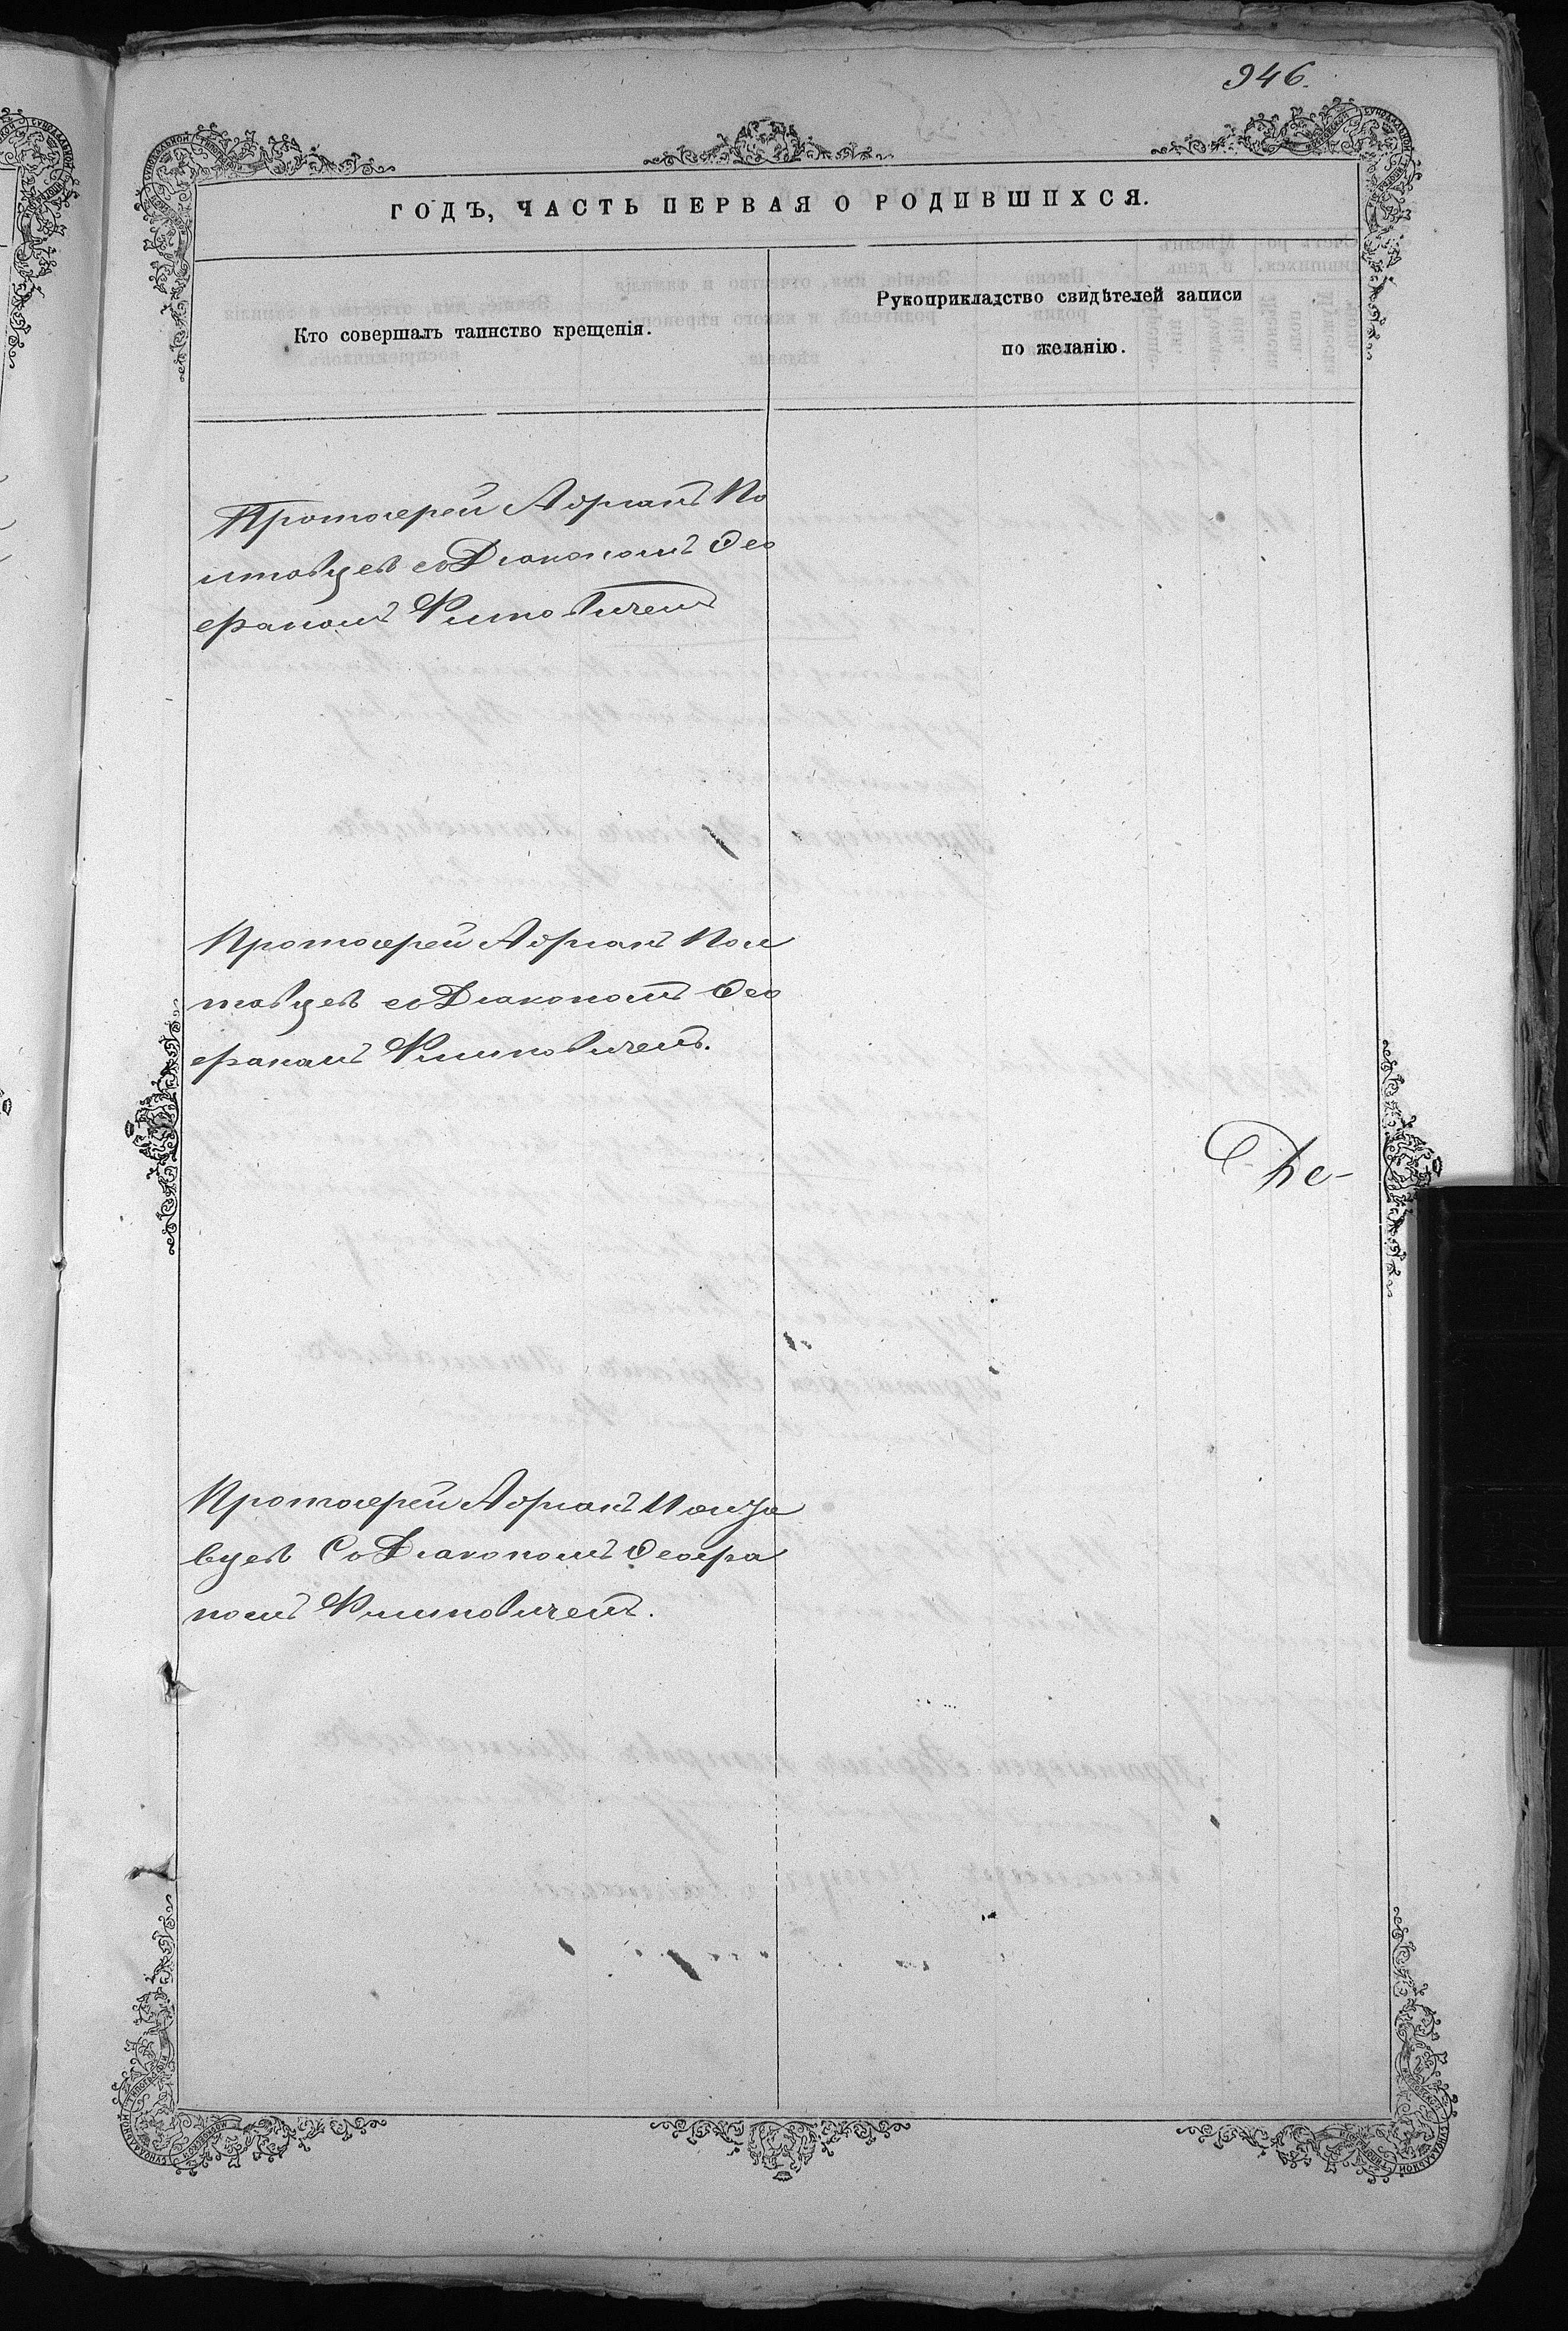 946.
ГОДЪ, ЧАСТЬ ПЕРВАЯ О РОДИВШИХСЯ.
Кто совершалъ таинство крещенія.
Рукоприкладство свидѣтелей записи
по желанію.
Протоіерей Адріанъ По
лтовцевъ со Діакономъ Ѳео
фаномъ
Протоіерей Адріанъ Пол
товцевъ со Діакономъ Ѳео
фаномъ
Протоіерей Адріанъ Полта
вцевъ Со Діакономъ Ѳеофа
номъ